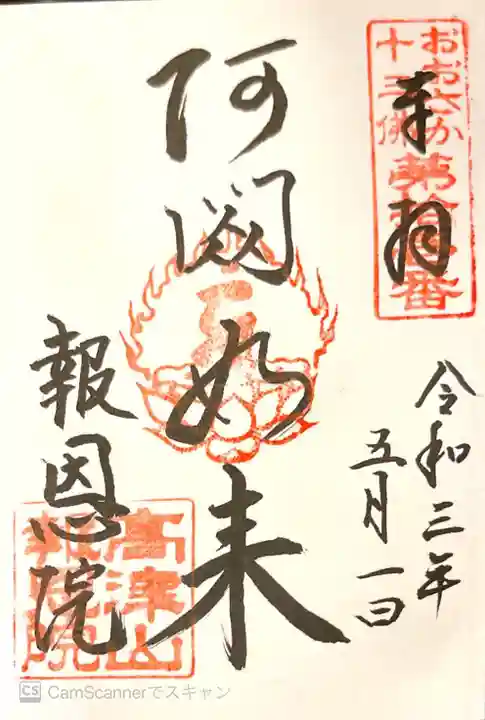 奉拝
おおさか
十三佛
第拾壹番
令和三年
五月一日
阿閦如来
報恩院
高津山
報恩院
CS CamScannerでスキャン